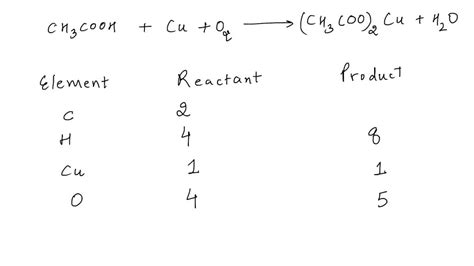 CH₃COOH + Cu + O₂ ⟶ (CH₃COO)₂Cu + H₂O
Element Reactant Product
C 2
H 4 8
Cu 1 1
O 4 5